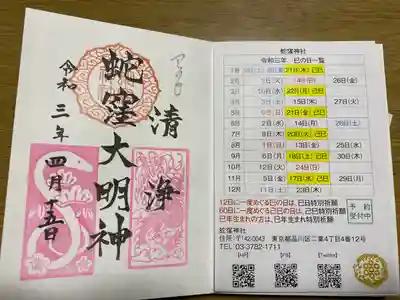 清浄
蛇窪大明神
令和三年四月十五日
蛇窪神社
令和三年 巳の日一覧
1月 21日(木)己巳
2月 1日(火) 26日(金)
3月 10日(水) 22日(月)己巳
4月 3日(土) 15日(木) 27日(火)
5月 21日(金)己巳
6月 2日(水) 14日(月) 26日(土)
7月 8日(木) 20日(火)己巳
8月 1日(日) 13日(金)
9月 6日(月) 18日(土)己巳 30日(木)
10月 12日(火) 24日(日)
11月 5日(金) 17日(水)己巳 29日(月)
12月 11日(土) 23日(木)
12日に一度めぐる巳の日は、巳日特別祈願
60日に一度めぐる己巳の日は、己巳日特別祈願
巳年生まれの方は、巳年生まれ特別祈願
予約
受付中
蛇窪神社
住所:〒142-0043 東京都品川区二葉4丁目4番12号
TEL 03-3782-1711
[HP] [Twitter]